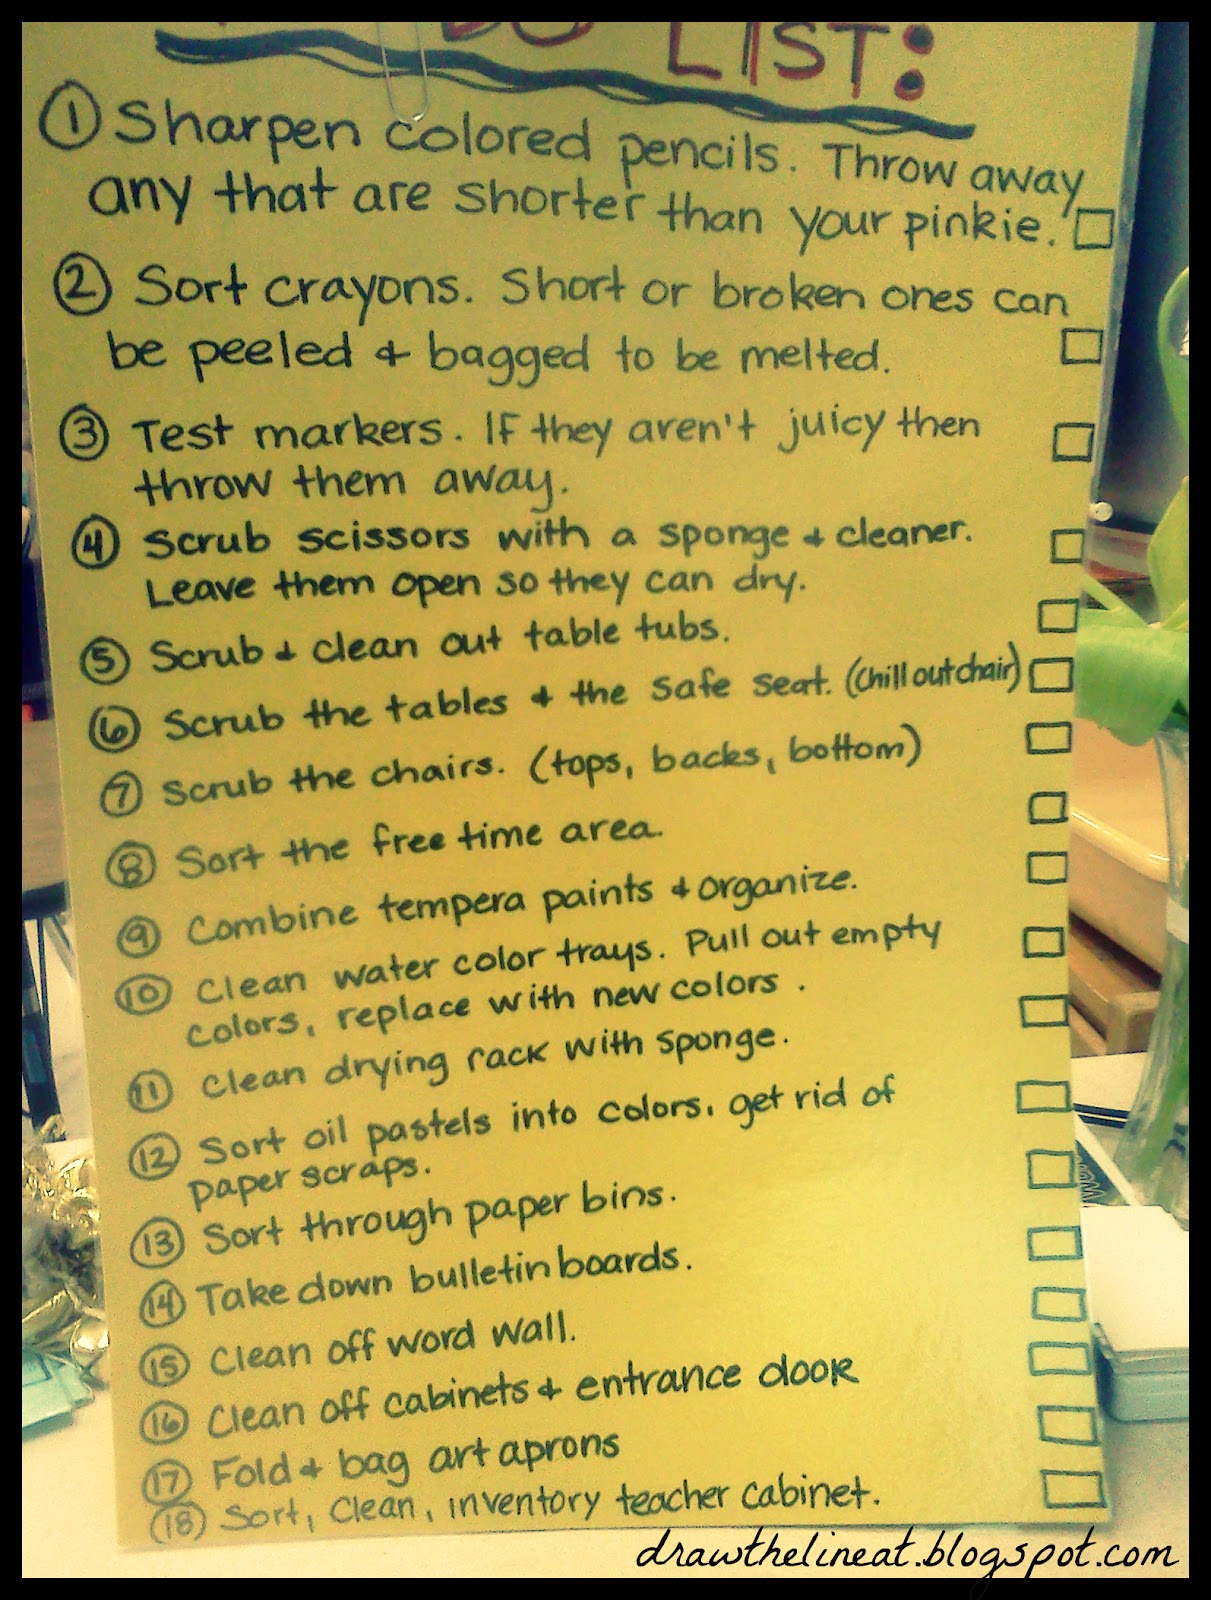 DO LIST:
① Sharpen colored pencils. Throw away
any that are shorter than your pinkie.
② Sort crayons. Short or broken ones can
be peeled & bagged to be melted.
③ Test markers. If they aren't juicy then
throw them away.
④ Scrub scissors with a sponge & cleaner.
Leave them open so they can dry.
⑤ Scrub & clean out table tubs.
⑥ Scrub the tables & the safe seat. (Chill out chair)
⑦ Scrub the chairs. (tops, backs, bottom)
⑧ Sort the free time area.
⑨ Combine tempera paints & organize.
⑩ Clean water color trays. Pull out empty
colors, replace with new colors.
⑪ Clean drying rack with sponge.
⑫ Sort oil pastels into colors, get rid of
paper scraps.
⑬ Sort through paper bins.
⑭ Take down bulletin boards.
⑮ Clean off word wall.
⑯ Clean off cabinets & entrance door
⑰ Fold & bag art aprons
⑱ Sort, Clean, inventory teacher cabinet.
drawthelineat.blogspot.com